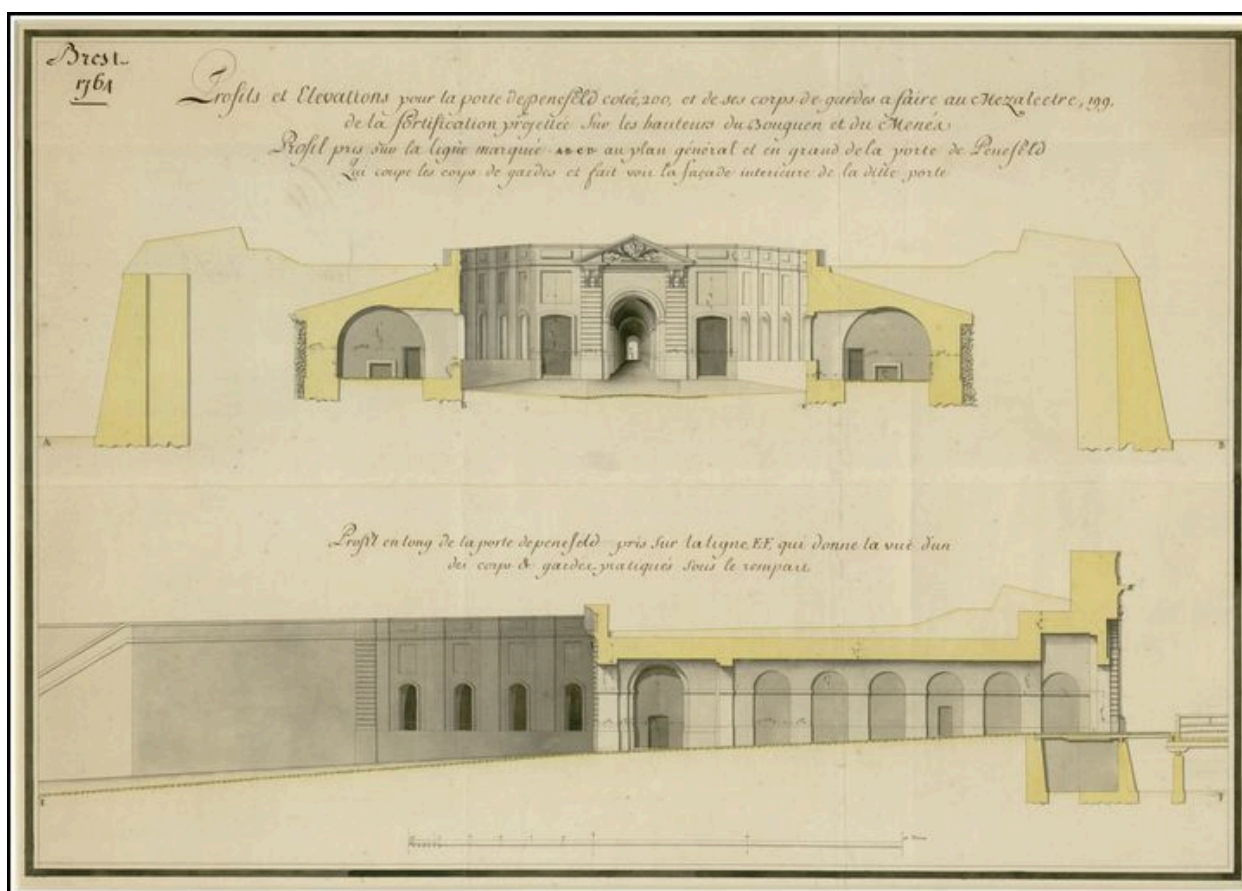 Brest
1764
Profils et Elevations pour la porte de penefeld cotée, 200, et de ses corps de gardes a faire au Mezalectre, 199.
de la fortification projettée Sur les hauteurs du Bouguen et du Menéz
Profil pris sur la ligne marquée ABCD au plan général et en grand de la porte de Penefeld
Qui coupe les corps de gardes et fait voir la façade interieure de la ditte porte
A
B
Profil en long de la porte de penefeld pris sur la ligne E.F. qui donne la vuë d'un
des corps de gardes pratiqués sous le rempart
E
F